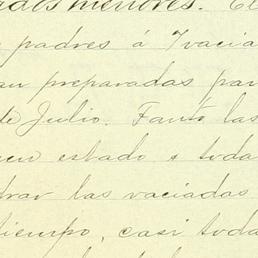 menores. El
padres á Vacia
an preparadas par
de Julio. Tanto las
uen estado s toda
drar las vaciadas
tiempo, casi toda